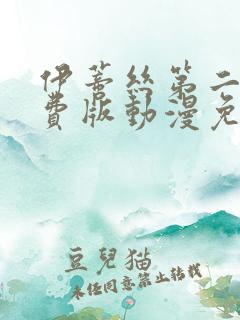 伊蒂絲第二
費版動漫免
豆兒猫
未经同意禁止转载